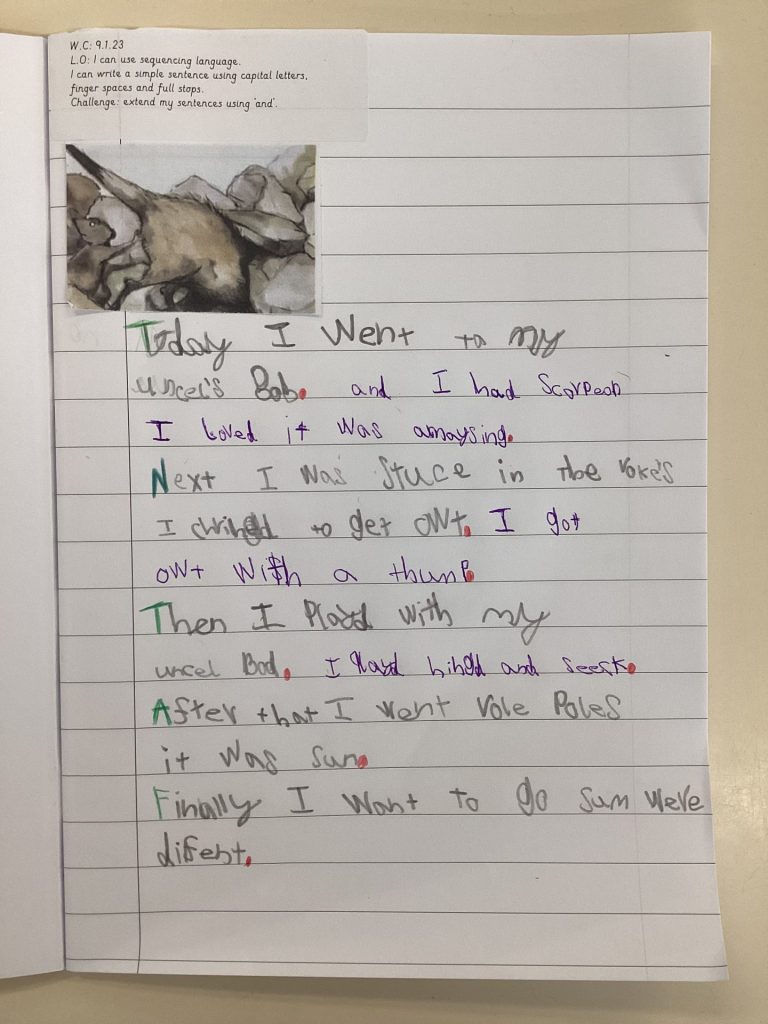 W.C: 9.1.23
L.O: I can use sequencing language.
I can write a simple sentence using capital letters,
finger spaces and full stops.
Challenge: extend my sentences using 'and'.
Today I Went to my
uncel's Bob. and I had Scorpeon
I loved it was amaysing.
Next I was stuce in the roke's
I to get owt. I got
owt with a thunp.
Then I Playd with my
uncel Bod. I Playd hihgd and seesk.
After that I went role Poles
it was sun.
Finally I want to go sum were
difent.